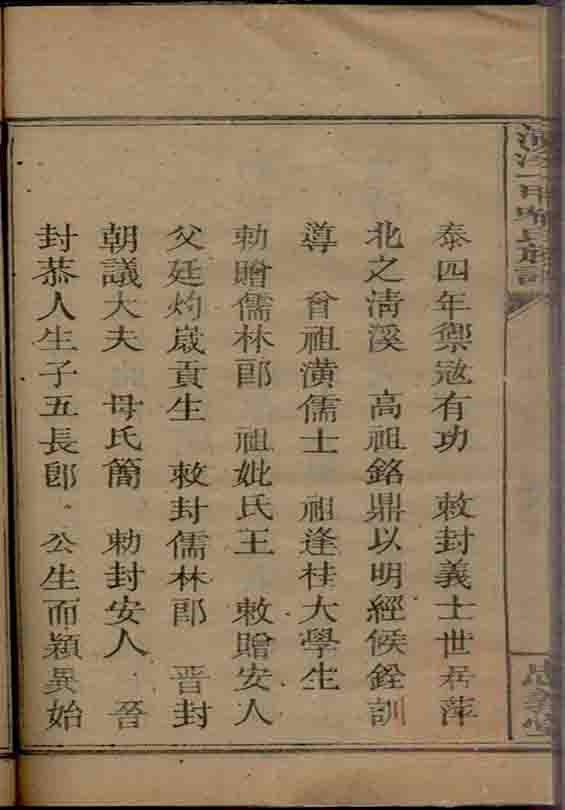 氏族譜
忠孝堂
泰四年禦寇有功 敕封義士世居萍
北之清溪 高祖銘鼎以明經候銓訓
導 曾祖潢儒士 祖逢桂大學生
勅贈儒林郎 祖妣氏王 敕贈安人
父廷灼歲貢生 敕封儒林郎 晉封
朝議大夫 母氏簡 勅封安人 晉
封恭人生子五長即 公生而穎異始